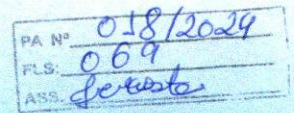 PA Nº 018/2024
FLS: 069
ASS.